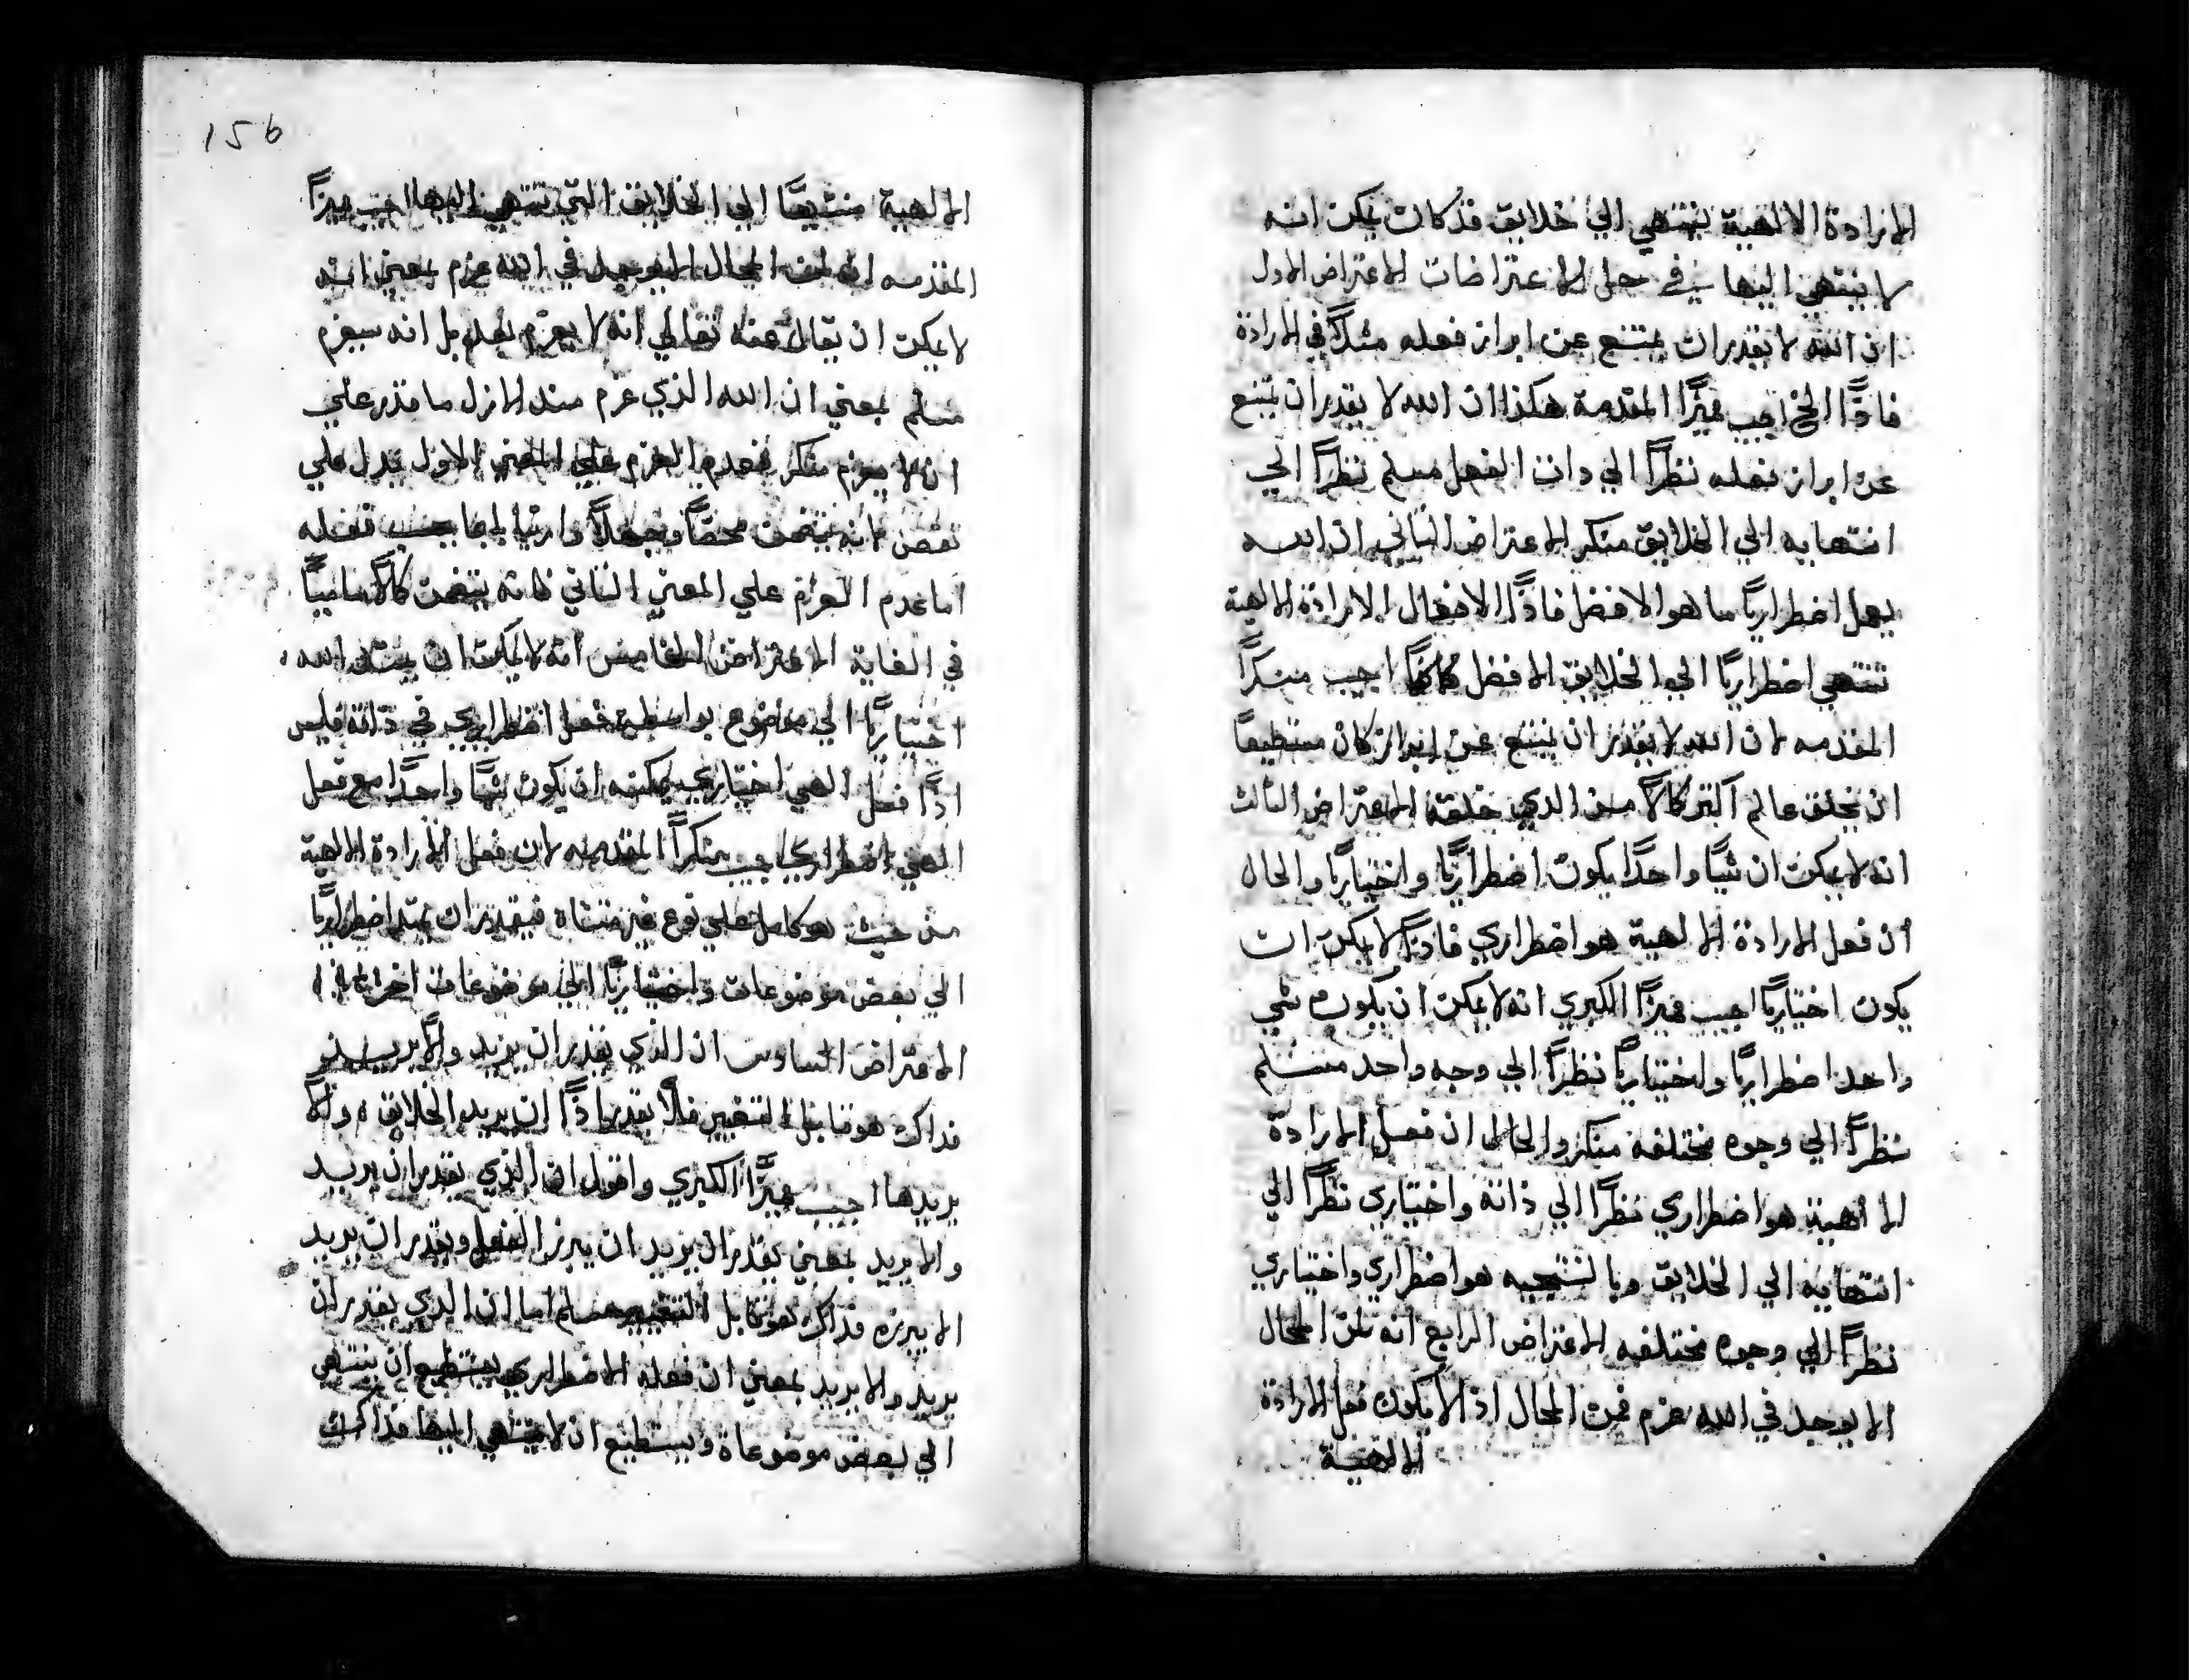 الارادة الالهية ينتهي الي خلايق قد كان يمكن انه
لا ينتهي اليها في حل الاعتراضات الاعتراض الاول
ان الله لا يقدر ان يمتنع عن ابراز فعله مثلاً في الارادة
فاذًا الخ اجيب مميزًا المقدمة هكذا ان الله لا يقدر ان يمتنع
عن ابراز فعله نظرًا الي ذات الفعل مسلم نظرًا الي
انتهايه الي الخلايق منكر الاعتراض الثاني ان الله
يعمل اضطراريًا ما هو الافضل فاذًا الافعال الارادة الالهية
تنتهي اضطراريًا الي الخلايق الافضل كافةً اجيب منكرًا
المقدمه لان الله لا يقدر ان يمتنع عن ابراز كان مستطيعًا
ان يخلق عالم اكثر كمالاً من الذي خلقه الاعتراض الثالث
انه لا يمكن ان شيًا واحدًا يكون اضطراريًا واختياريًا والحال
ان فعل الارادة الالهية هو اضطراري فاذًا لا يمكن ان
يكون اختياريًا اجيب مميزًا الكبري انه لا يمكن ان يكون شي
واحد اضطراريًا واختياريًا نظرًا الي وجه واحد مسلم
نظرًا الي وجوه مختلفه منكر والحال ان فعل الارادة
الالهية هو اضطراري نظرًا الي ذاته واختياري نظرًا الي
انتهايه الي الخلايق وبالنتيجه هو اضطراري واختياري
نظرًا الي وجوه مختلفه الاعتراض الرابع انه لمن المحال
الا يوجد في الله عزم فمن المحال اذ الا يكون فعل الارادة
الالهية
156
الالهية منتهيًا الي الخلايق التي تنتهي اليها اجيب مميزًا
المقدمه انه لمن المحال الا يوجد في الله عزم بمعني انه
لا يمكن ان يقال عنه تعالي انه لا يعزم بعد بل انه سيعزم
مسلم بمعني ان الله الذي عزم منذ الازل ما قدر علي
ان لا يعزم منكر فعدم العزم علي المعني الاول يدل علي
نقص لانه يتضمن فحصًا وجهلاً وارتيابا بما يجب فعله
اما عدم العزم علي المعني الثاني فانه يتضمن كمالاً ساميًا
في الغاية الاعتراض الخامس انه لا يمكن ان يمتد الله
اختياريًا الي موضوع بواسطة فعل اضطراري في ذاته فليس
اذًا فعل الهي اختياري يمكنه ان يكون شيًا واحدًا مع فعل
الهي اضطراري اجيب منكرًا المقدمه لان فعل الارادة الالهية
من حيث هو كامل علي نوع غير متناه فيقدر ان يمتد اضطراريًا
الي بعض موضوعات واختياريًا الي موضوعات اخر
الاعتراض السادس ان الذي يقدر ان يريد والا يريد
فذاك هو قابل التغيير فلا يقدر اذًا ان يريد الخلايق والا
يريدها اجيب مميزًا الكبري واقول ان الذي يقدر ان يريد
والا يريد بمعني يقدر ان يريد ان يبرز الفعل ويقدر ان يريد
الا يبرزه فذاك هو قابل التغيير مسلم اما ان الذي يقدر ان
يريد والا يريد بمعني ان فعله الاضطراري يستطيع ان ينتهي
الي بعض موضوعاة ويستطيع ان لا ينتهي اليها فذاك